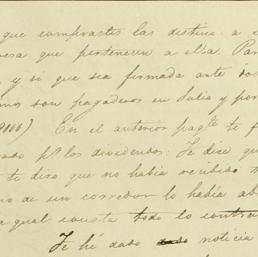 que comprastes las destine a e
esa que pertenecen a ella. Par
y si que sea firmada ante dos
mos son pagaderos en Julio y por
9100). En el anterior pagte te f
ado pr los dividendos: Te dice q
te dizo que no había recibido
no de un corredor lo había ab
a qual consta todo lo contra
Te hé dado dado noticia